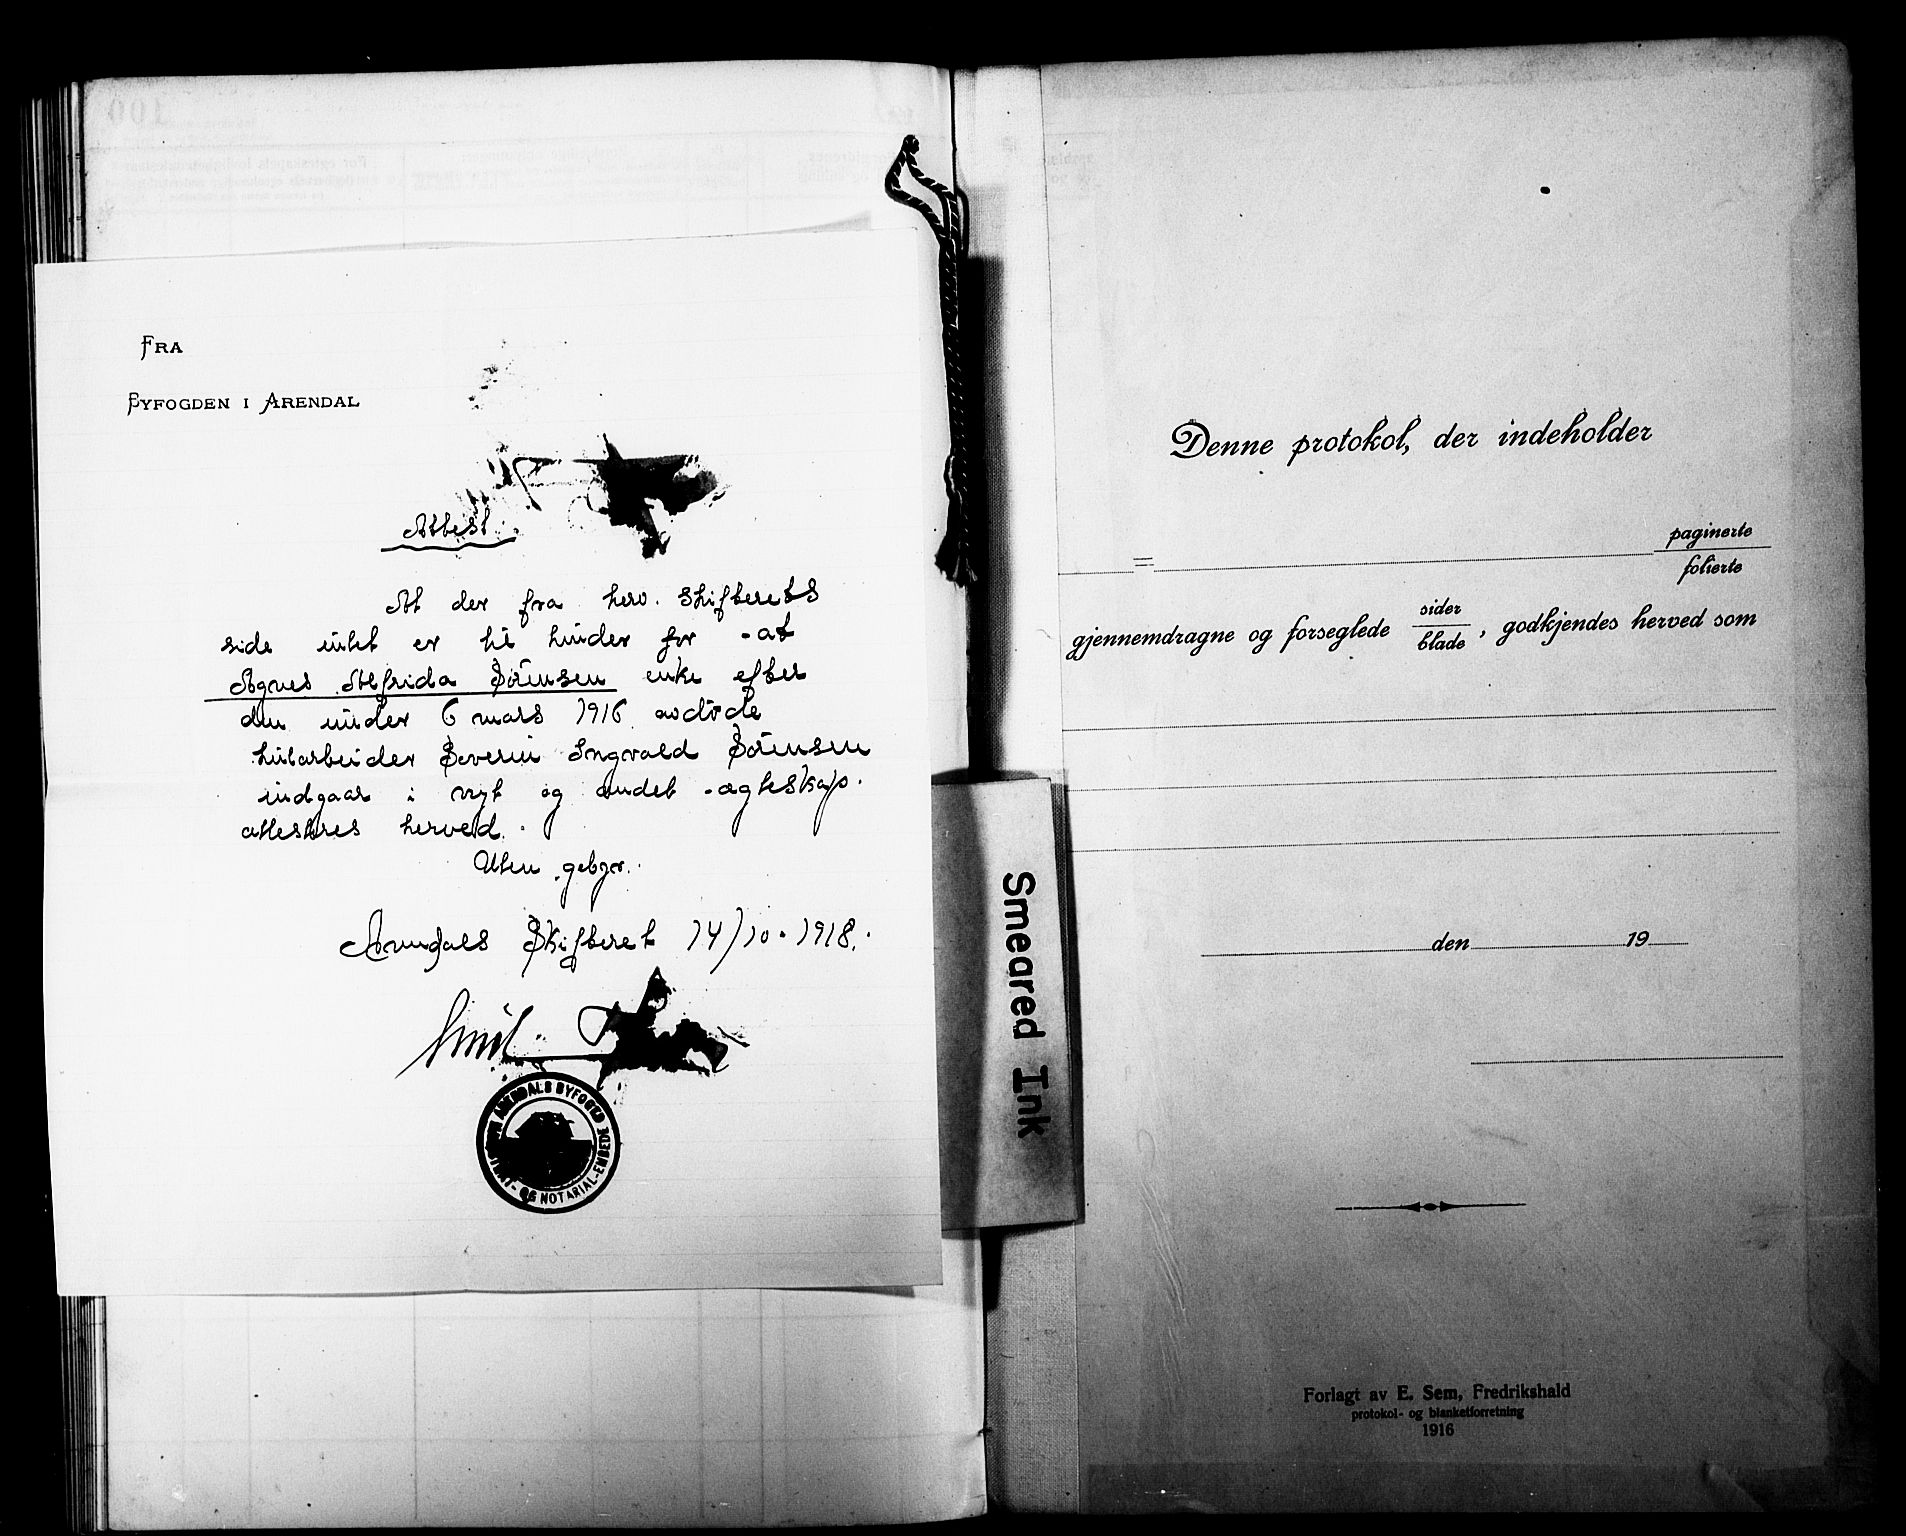 FRA
BYFOGDEN I ARENDAL
Attest.
At der fra herv. skifterets
side intet er til hinder for at
Agnes Alfrida Sörensen enke efter
den under 6 mars 1916 avdöde
hutarbeider Severin Ingvald Sörensen
indgaar i nyt og andet ægteskap.
attesteres herved.
Uten gebyr.
Arendals Skifteret 14/10. 1918.
ARENDALS BYFOGED
OG NOTARIAL-EMBEDE
Smeared Ink
Denne protokol, der indeholder
= paginerte
folierte
gjennemdragne og forseglede sider
blade, godkjendes herved som
den 19
Forlagt av E. Sem, Fredrikshald
protokol- og blanketforretning
1916